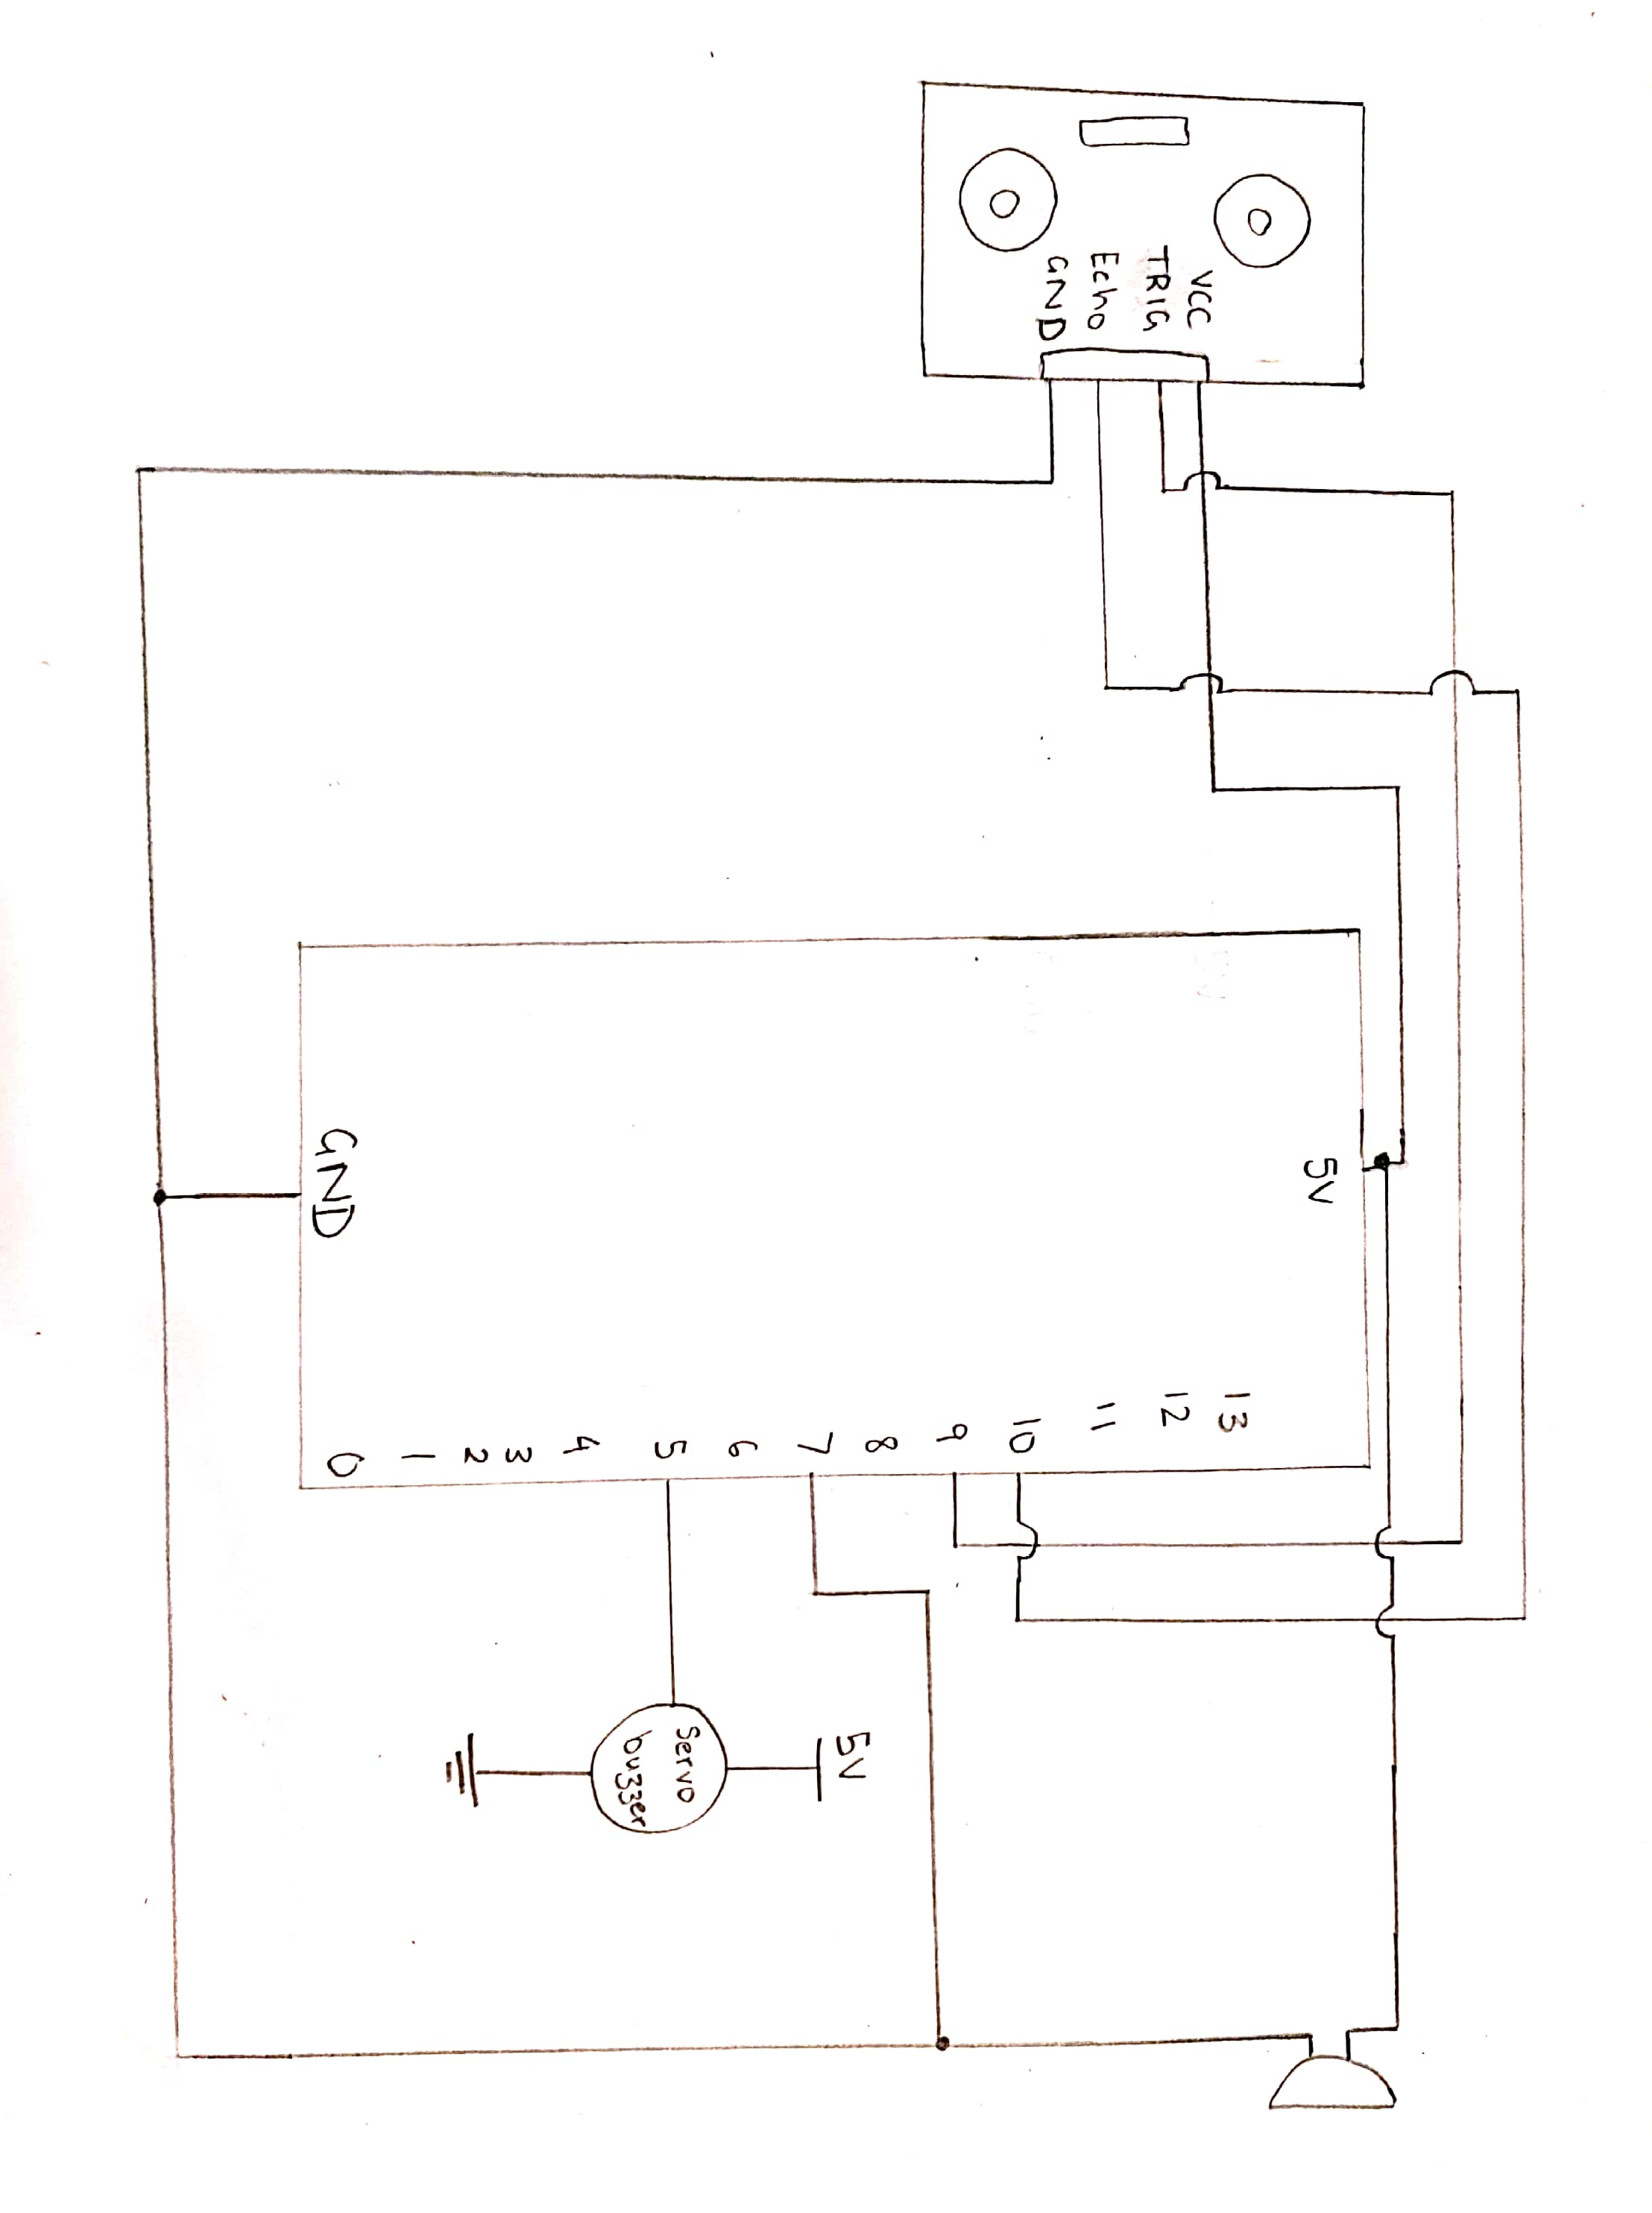 VCC
TRIG
Echo
GND
5V
GND
13
12
11
10
9
8
7
6
5
4
3
2
1
0
5V
Servo
buzzer